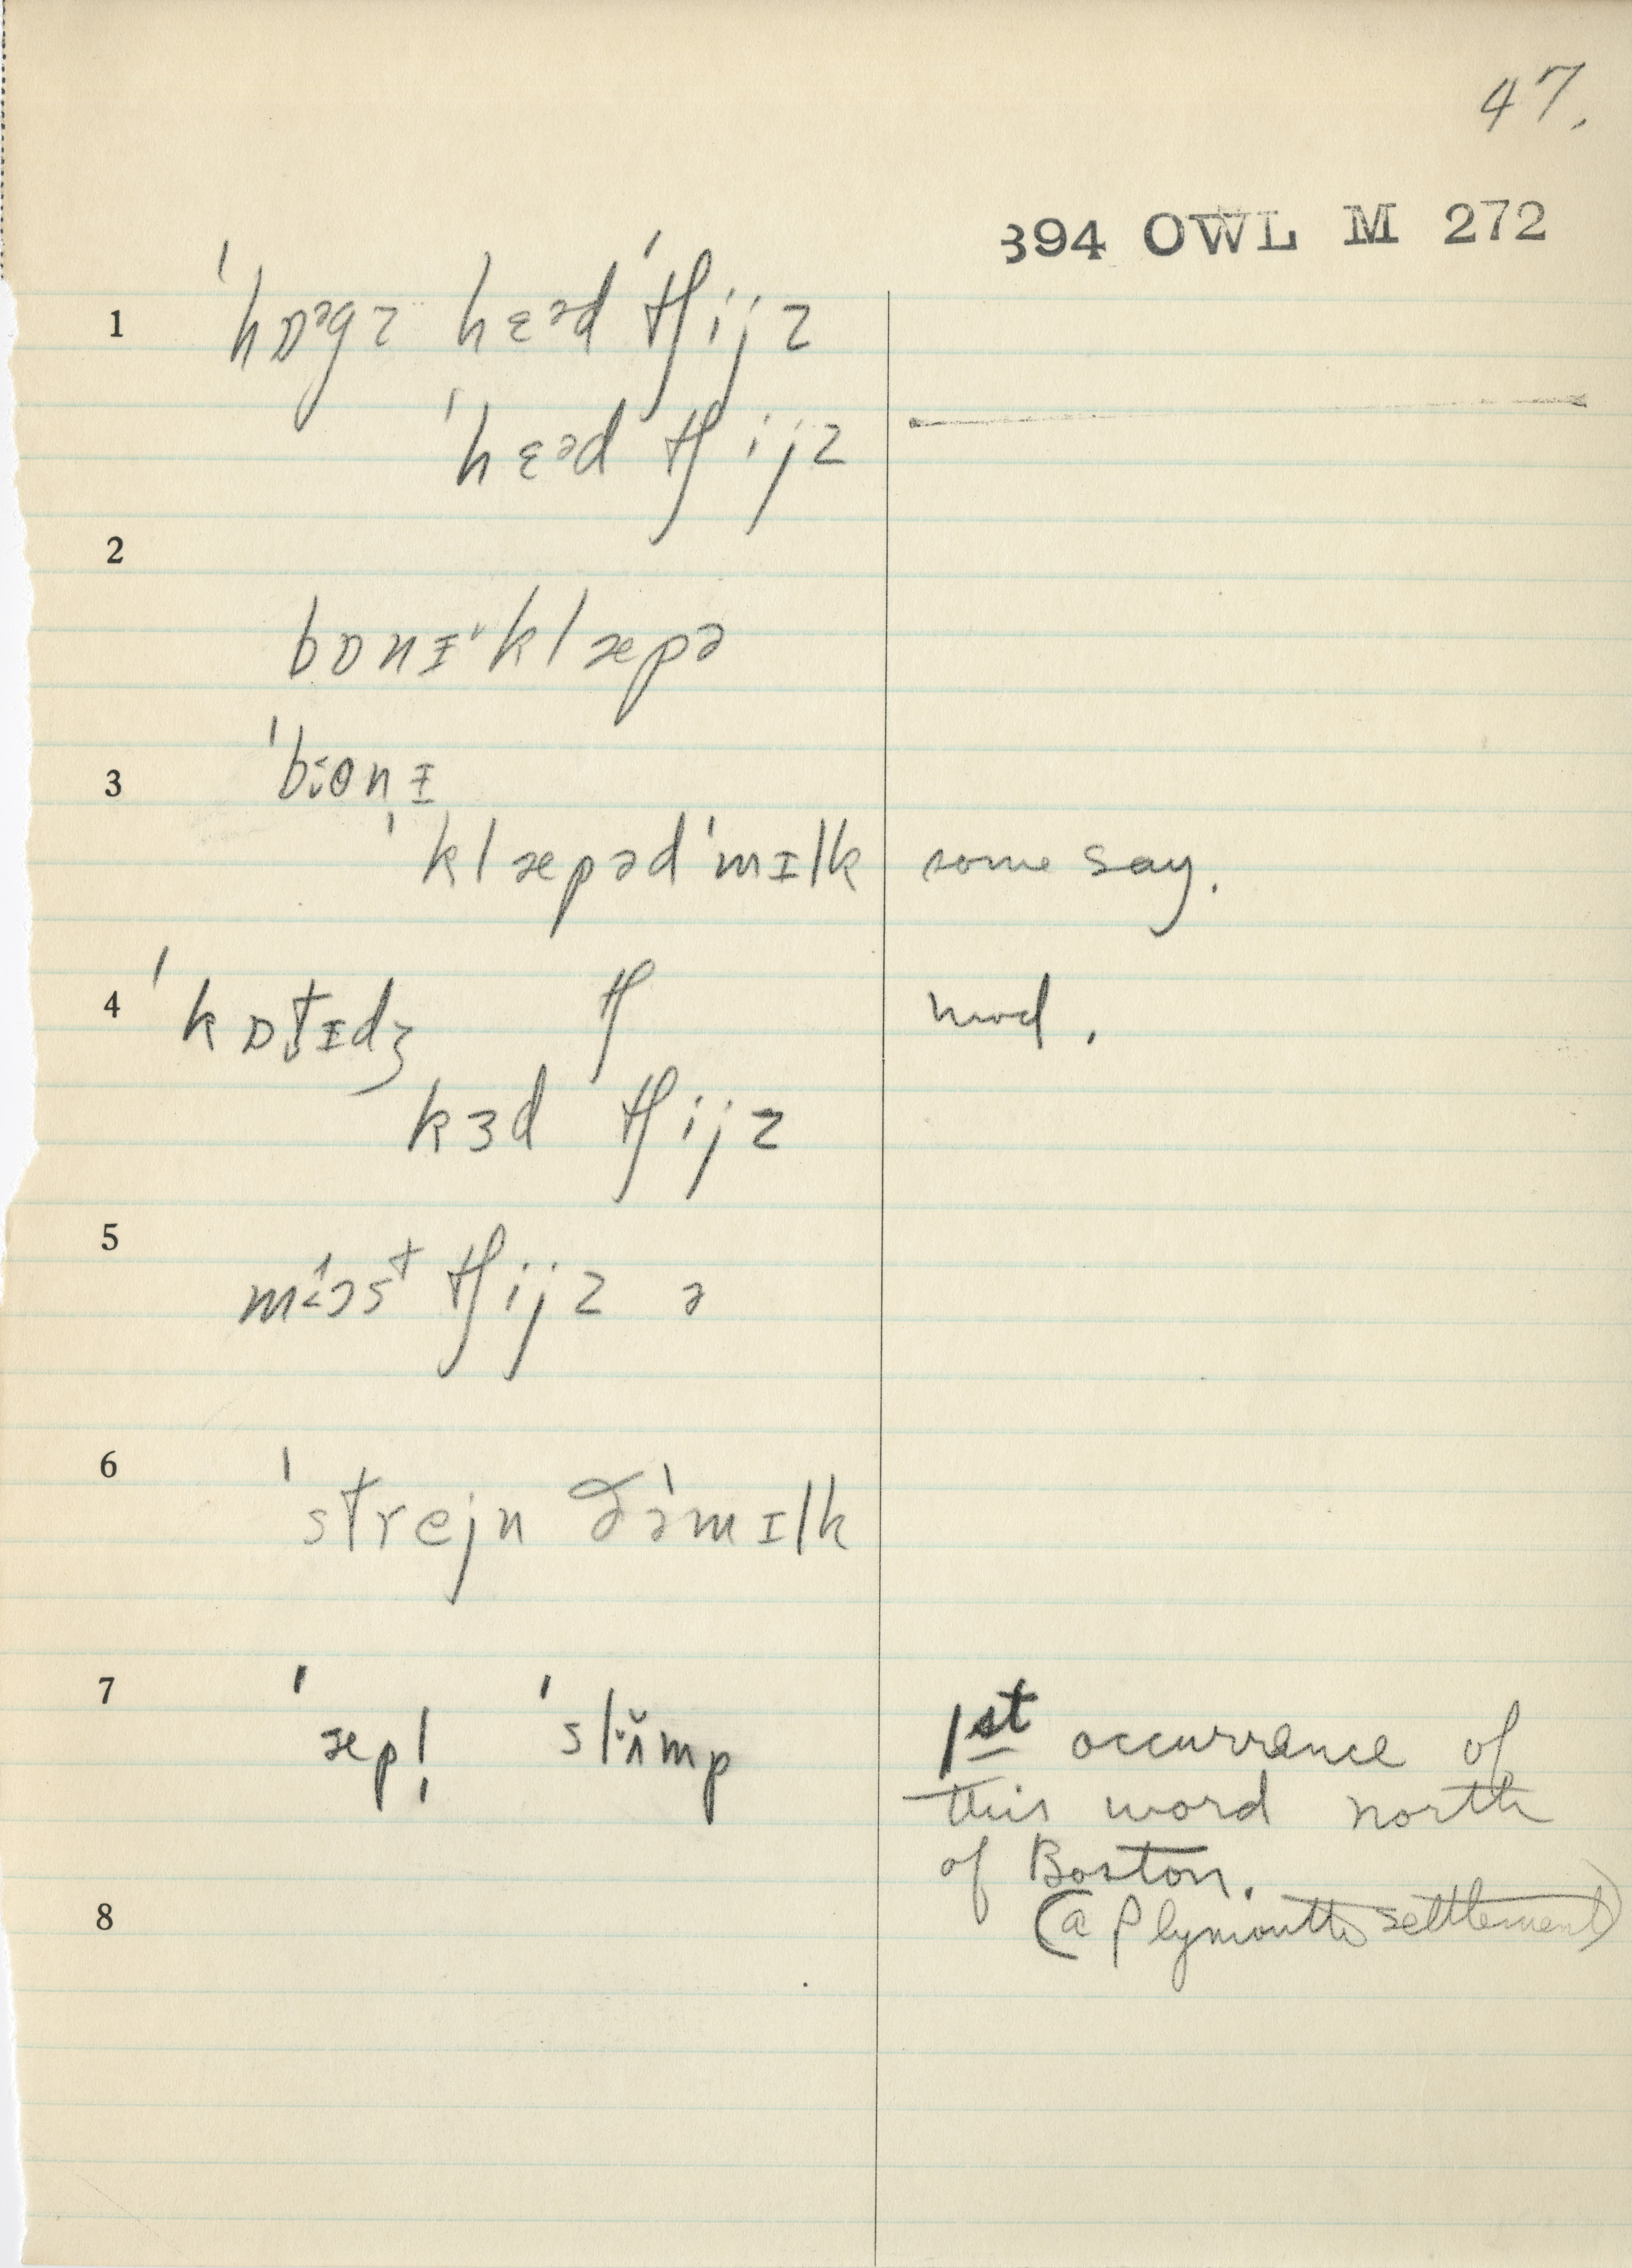 47.
394 OWL M 272
1 ˈhɒᵊgz hɛᵊd ˈtʃijz
ˈhɛᵊd tʃijz
2
bɒnɪˈklæpə
3 ˈbɒnɪ
ˈklæpəd ˈmɪlk some say.
4 ˈkɒt̬ɪdʒ tʃ mod.
kɜd tʃijz
5
tʃijz ə
6 ˈstrejn ðəˈmɪlk
7 ˈæpl̩ ˈslʌ̆mp 1st occurrence of
this word north
of Boston.
8 (a Plymouth settlement)